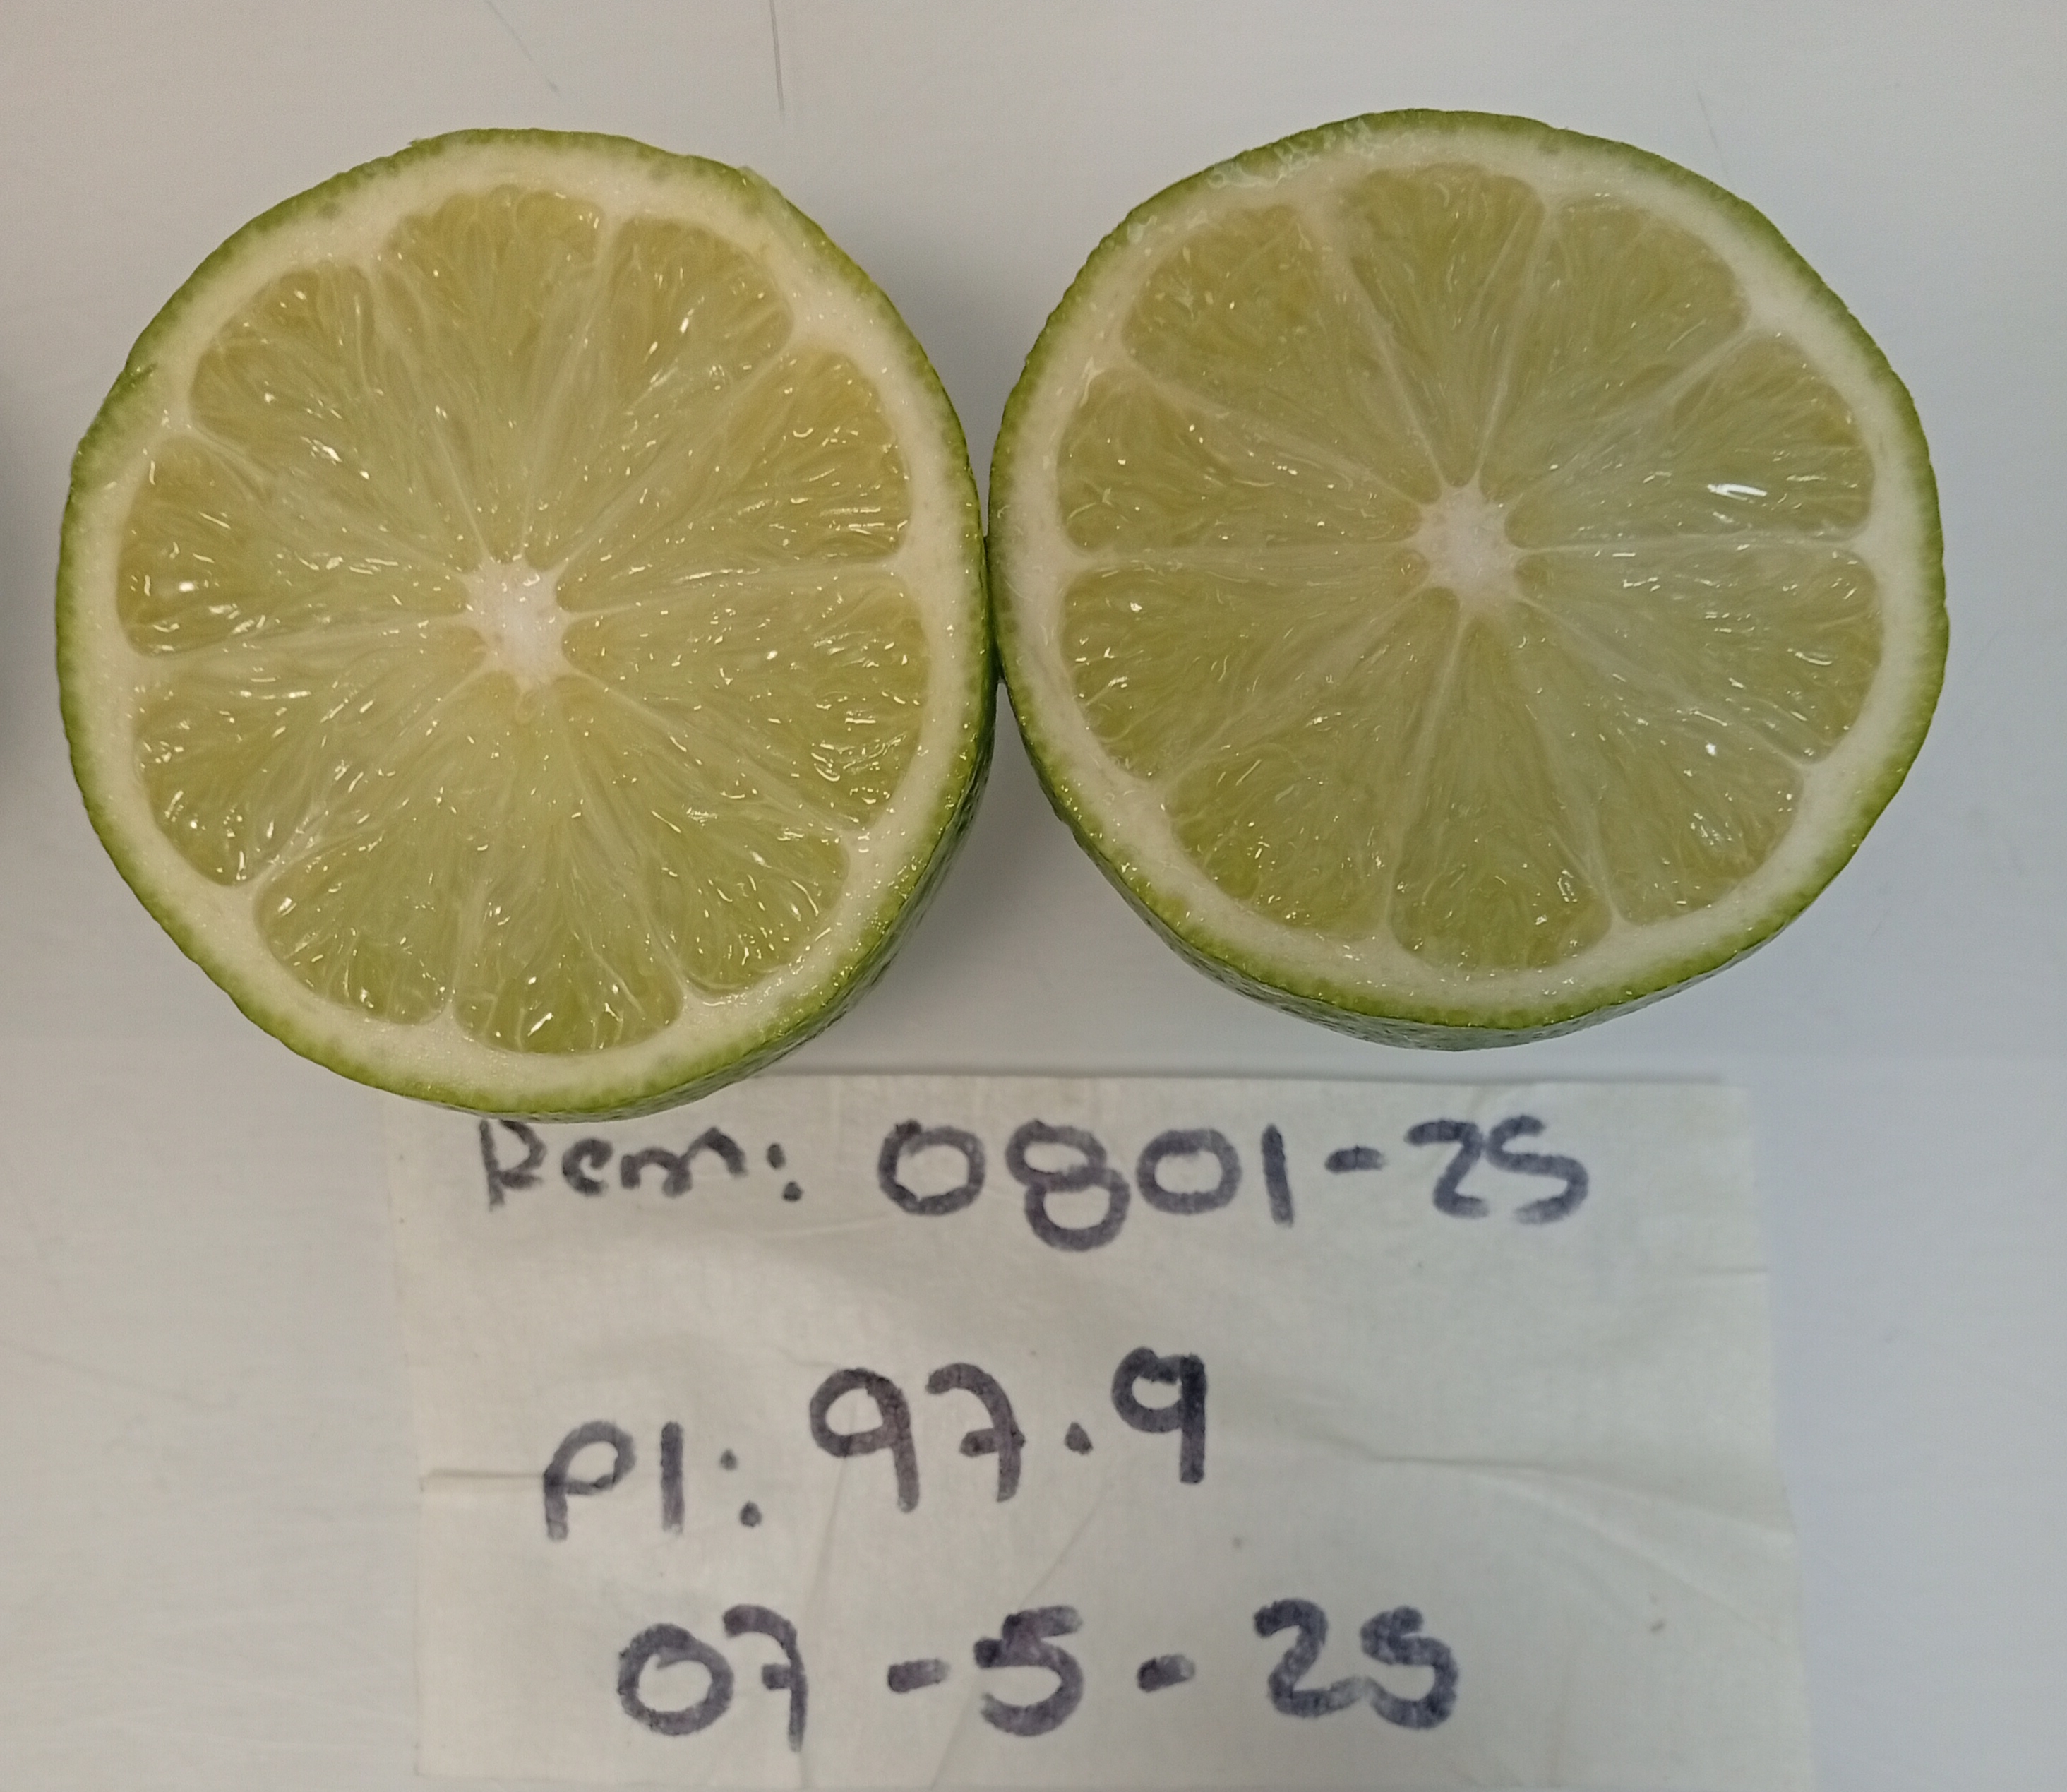 Rem: 0801-25
PI: 97.9
07-5-25